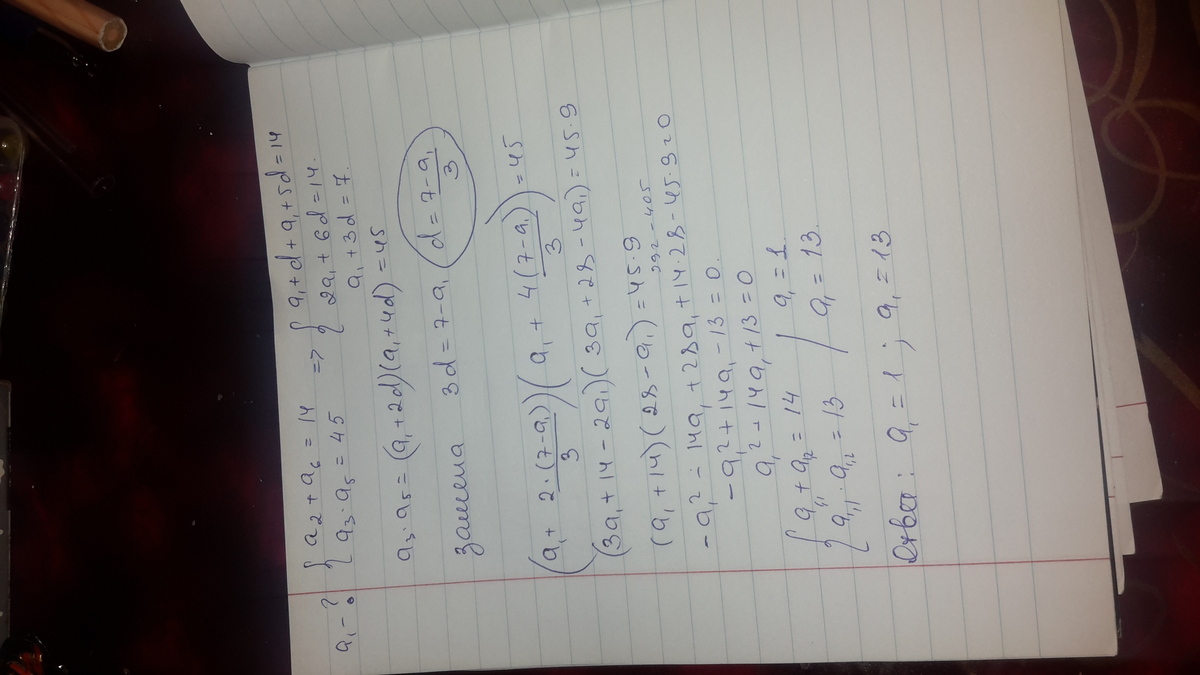 a₁ - ? { a₂ + a₆ = 14 => { a₁ + d + a₁ + 5d = 14
a₃ · a₅ = 45 { 2a₁ + 6d = 14.
a₁ + 3d = 7.
a₃ · a₅ = (a₁ + 2d)(a₁ + 4d) = 45
замена 3d = 7 - a₁ ( d = (7 - a₁)/3
(a₁ + 2 · (7 - a₁)/3)(a₁ + 4(7 - a₁)/3) = 45
(3a₁ + 14 - 2a₁)(3a₁ + 28 - 4a₁) = 45 · 9
(a₁ + 14)(28 - a₁) = 45 · 9
392 - 405
- a₁² - 14a₁ + 28a₁ + 14 · 28 - 45 · 9 = 0
- a₁² + 14a₁ - 13 = 0.
a₁² - 14a₁ + 13 = 0
{ a₁,₁ + a₁,₂ = 14 / a₁ = 1.
{ a₁,₁ · a₁,₂ = 13 / a₁ = 13.
Ответ: a₁ = 1 ; a₁ = 13